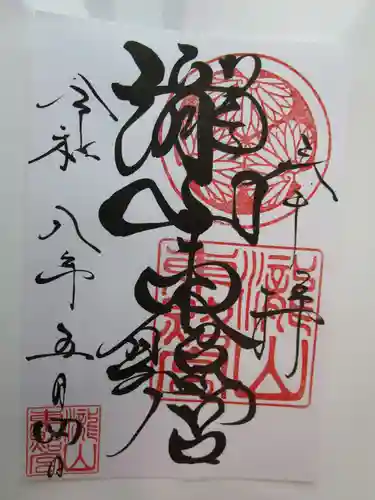 奉拝
瀧山東照宮
令和八年五月四日
瀧山東照宮